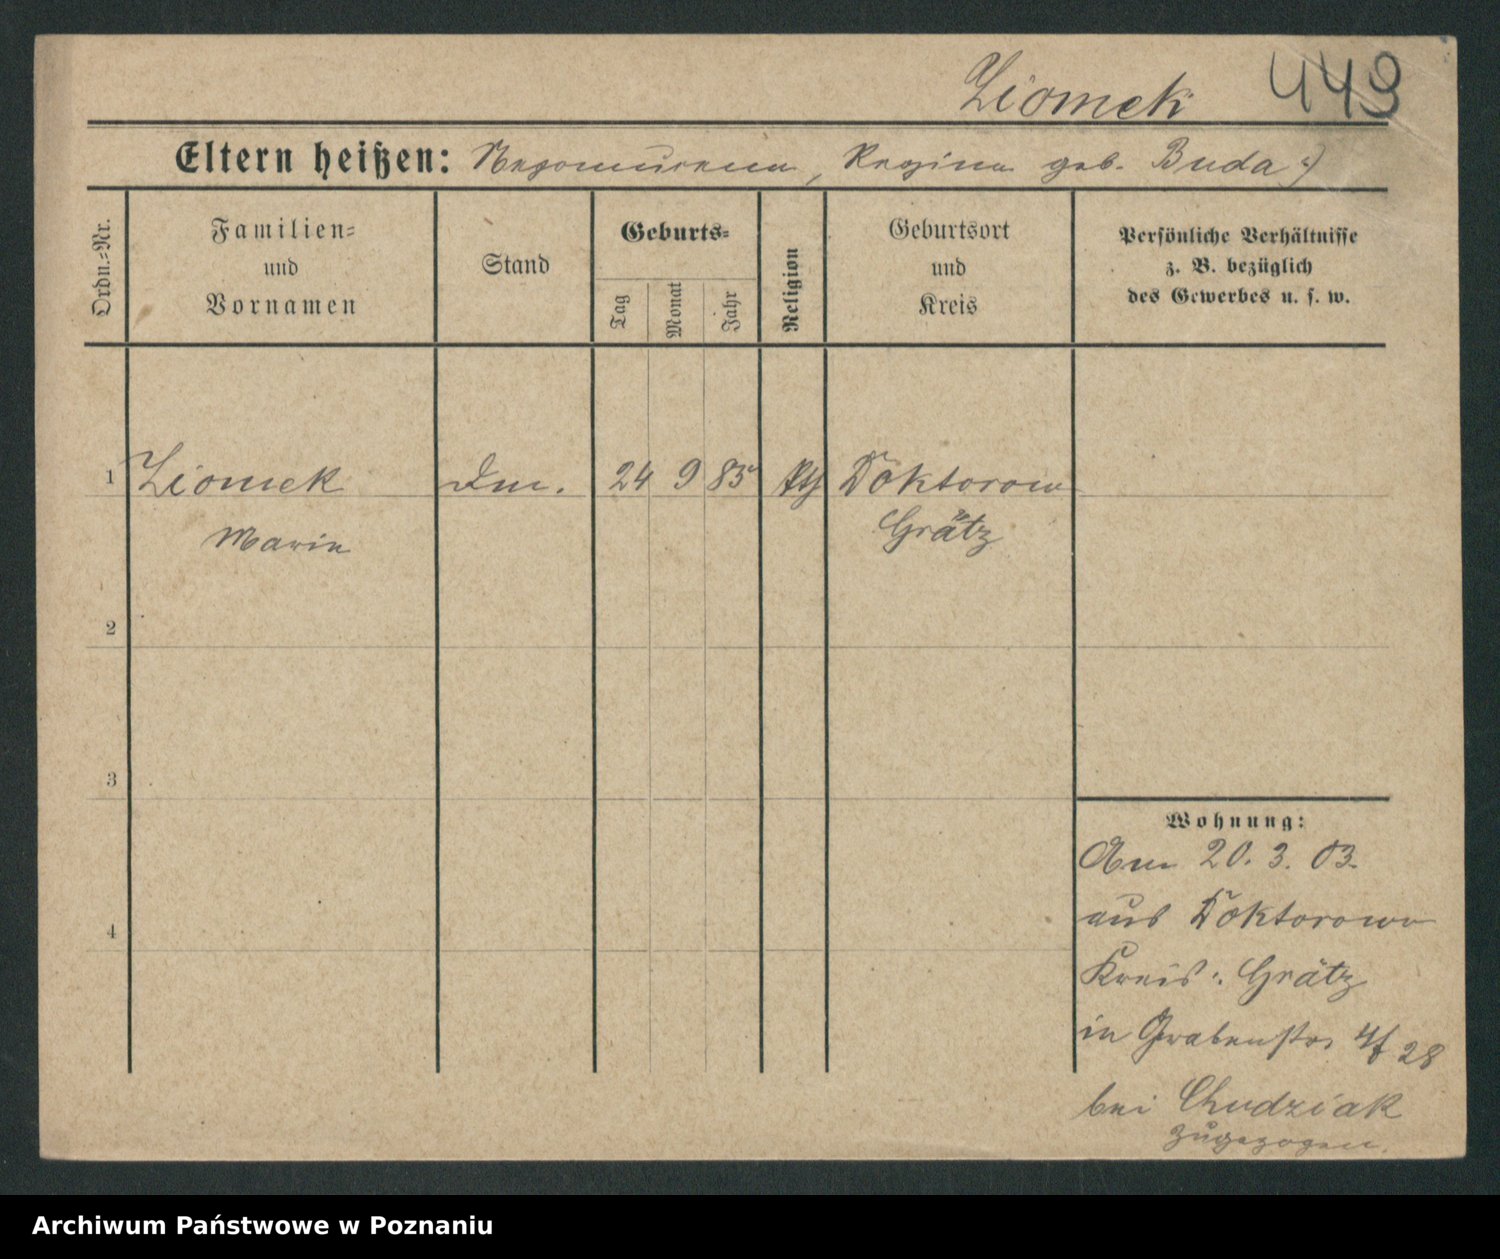 Ziomek 449
Eltern heißen: Nepomucena, Regina geb. Buda
Ordn.-Nr.
Familien-
und
Vornamen
Stand
Geburts-
Tag
Monat
Jahr
Religion
Geburtsort
und
Kreis
Persönliche Verhältnisse
z. B. bezüglich
des Gewerbes u. s. w.
1 Ziomek 24 9 85 kth Doktorowo
Maria Grätz
2
3
4
Wohnung:
Am 20. 3. 03.
aus Doktorowo
Kreis: Grätz
in Grabenstr. 28
bei Chudziak
zugezogen.
Archiwum Państwowe w Poznaniu